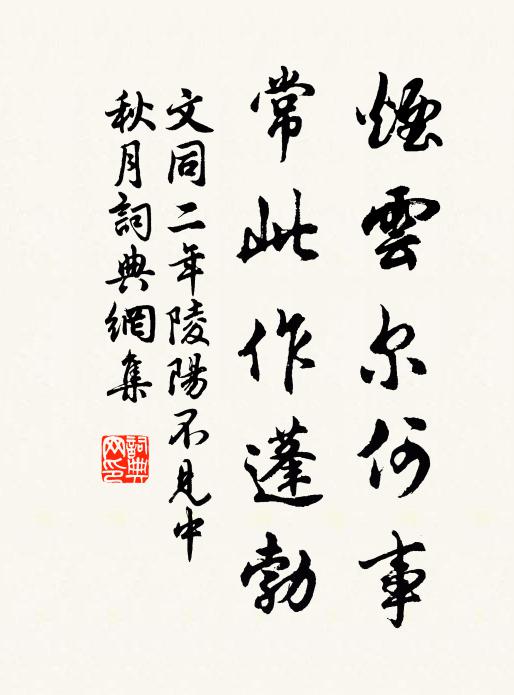 煙雲尔何事
常此作蓬勃
文同二年陵陽不見中
秋月詞典網集
詞典网印